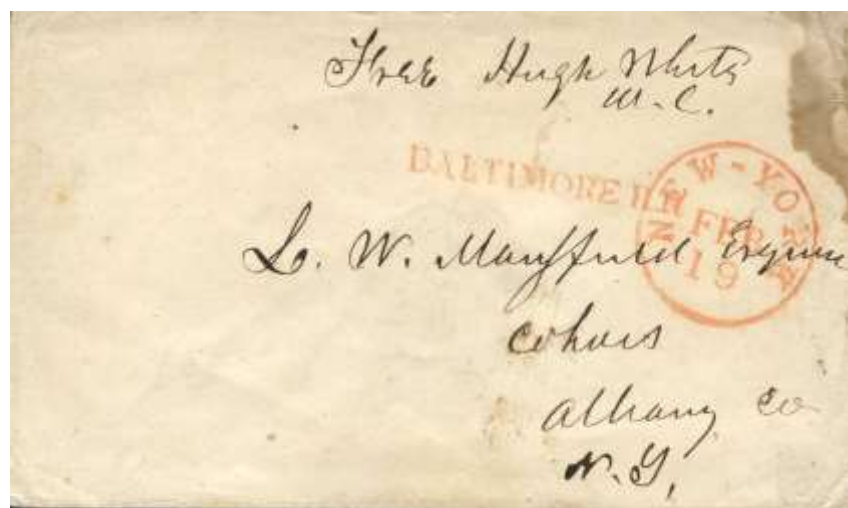 Free Hugh White
M.C.
BALTIMORE R.R
NEW-YORK
FEB
19
L. W. Mansfield Esquire
Cohoes
Albany Co
N.Y,